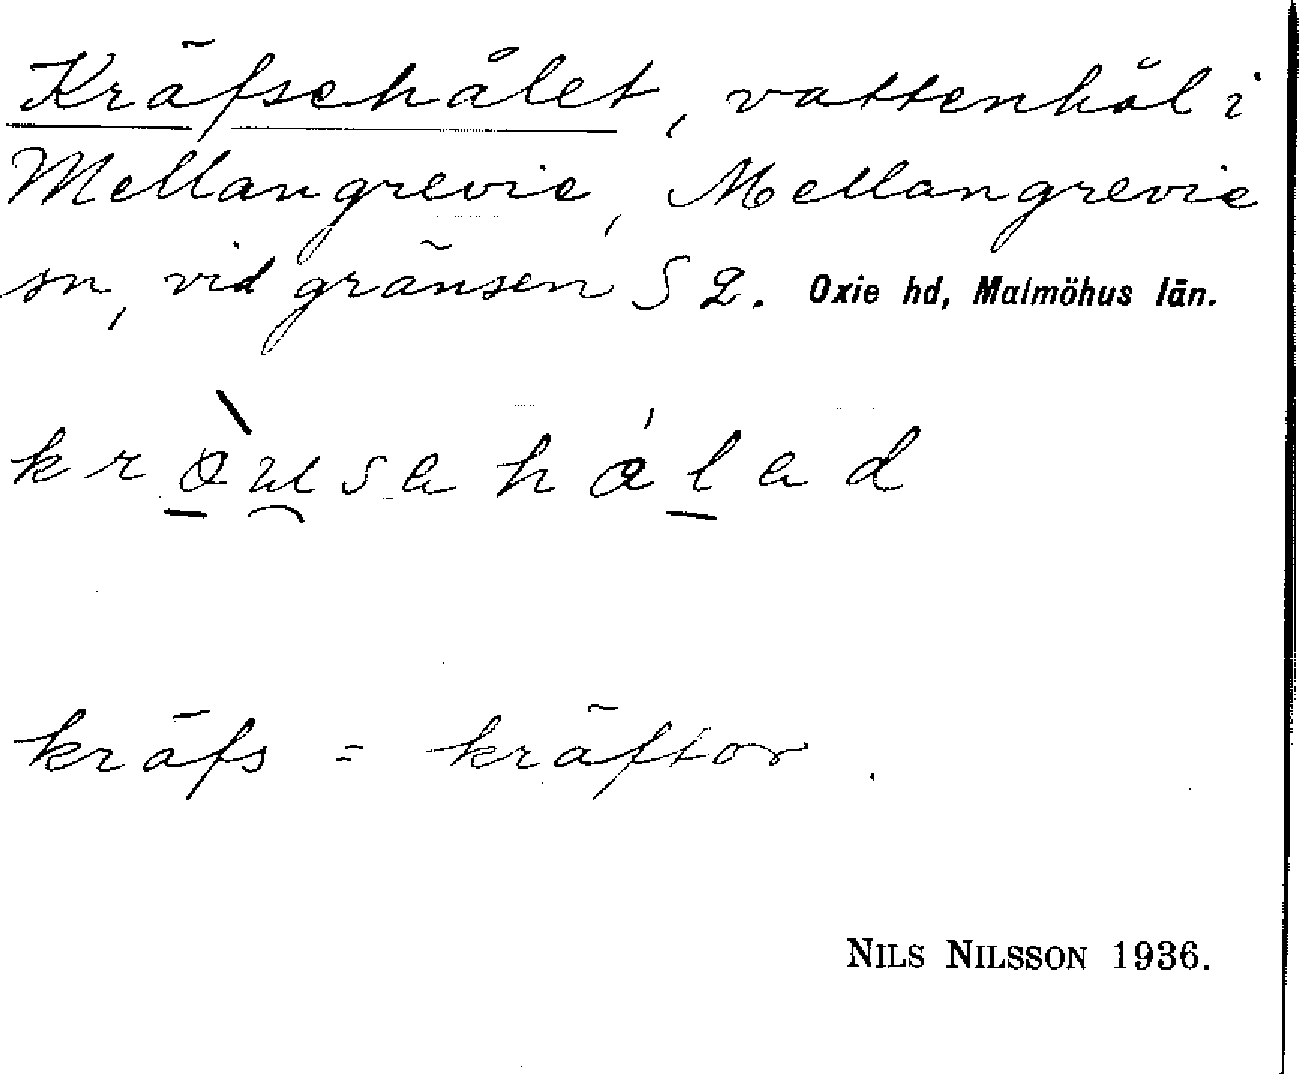 Kräfsehålet, vattenhål i
Mellangrevie, Mellangrevie
sn, vid gränsen S 2. Oxie hd, Malmöhus län.
kräfs = kräftor.
NILS NILSSON 1936.